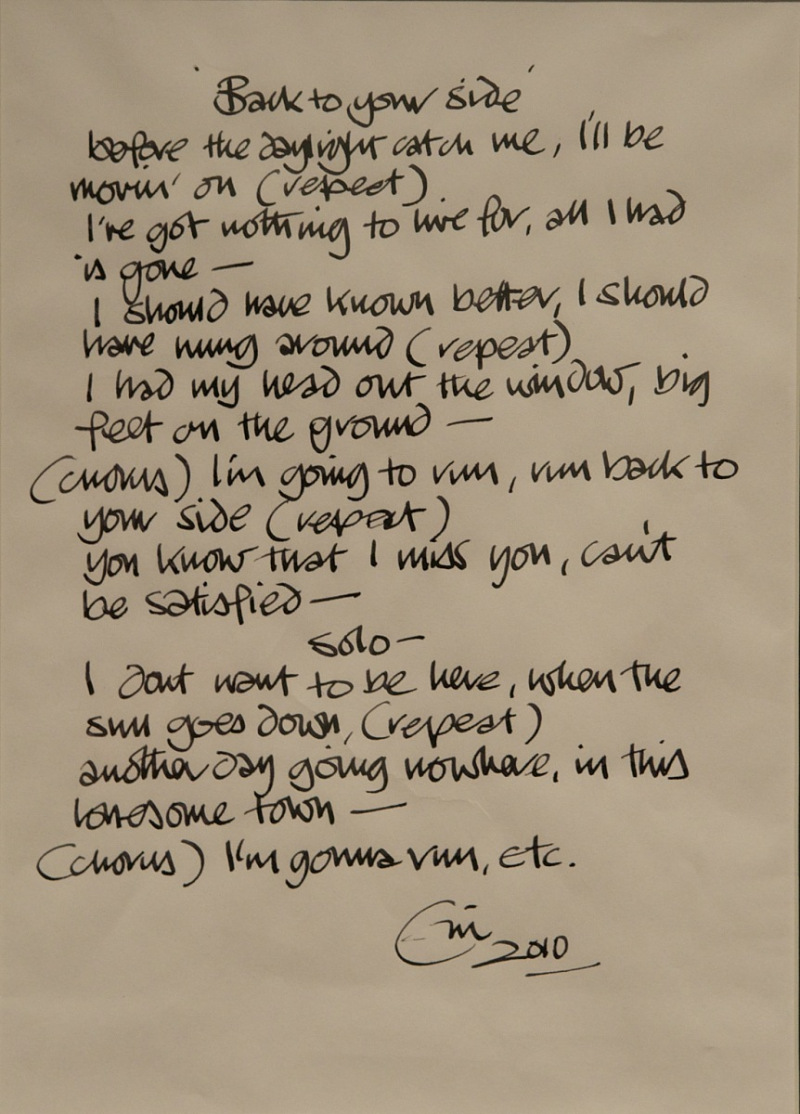 'Back to your side'
before the daylight catch me, I'll be
movin' on (repeat)
I've got nothing to live for, all I had
is gone —
I should have known better, I should
have hung around (repeat)
I had my head out the window, big
feet on the ground —
(chorus) I'm going to run, run back to
your side (repeat)
you know that I miss you, can't
be satisfied —
solo —
I dont want to be here, when the
sun goes down, (repeat)
another day going nowhere, in this
lonesome town —
(chorus) I'm gonna run, etc.
2010